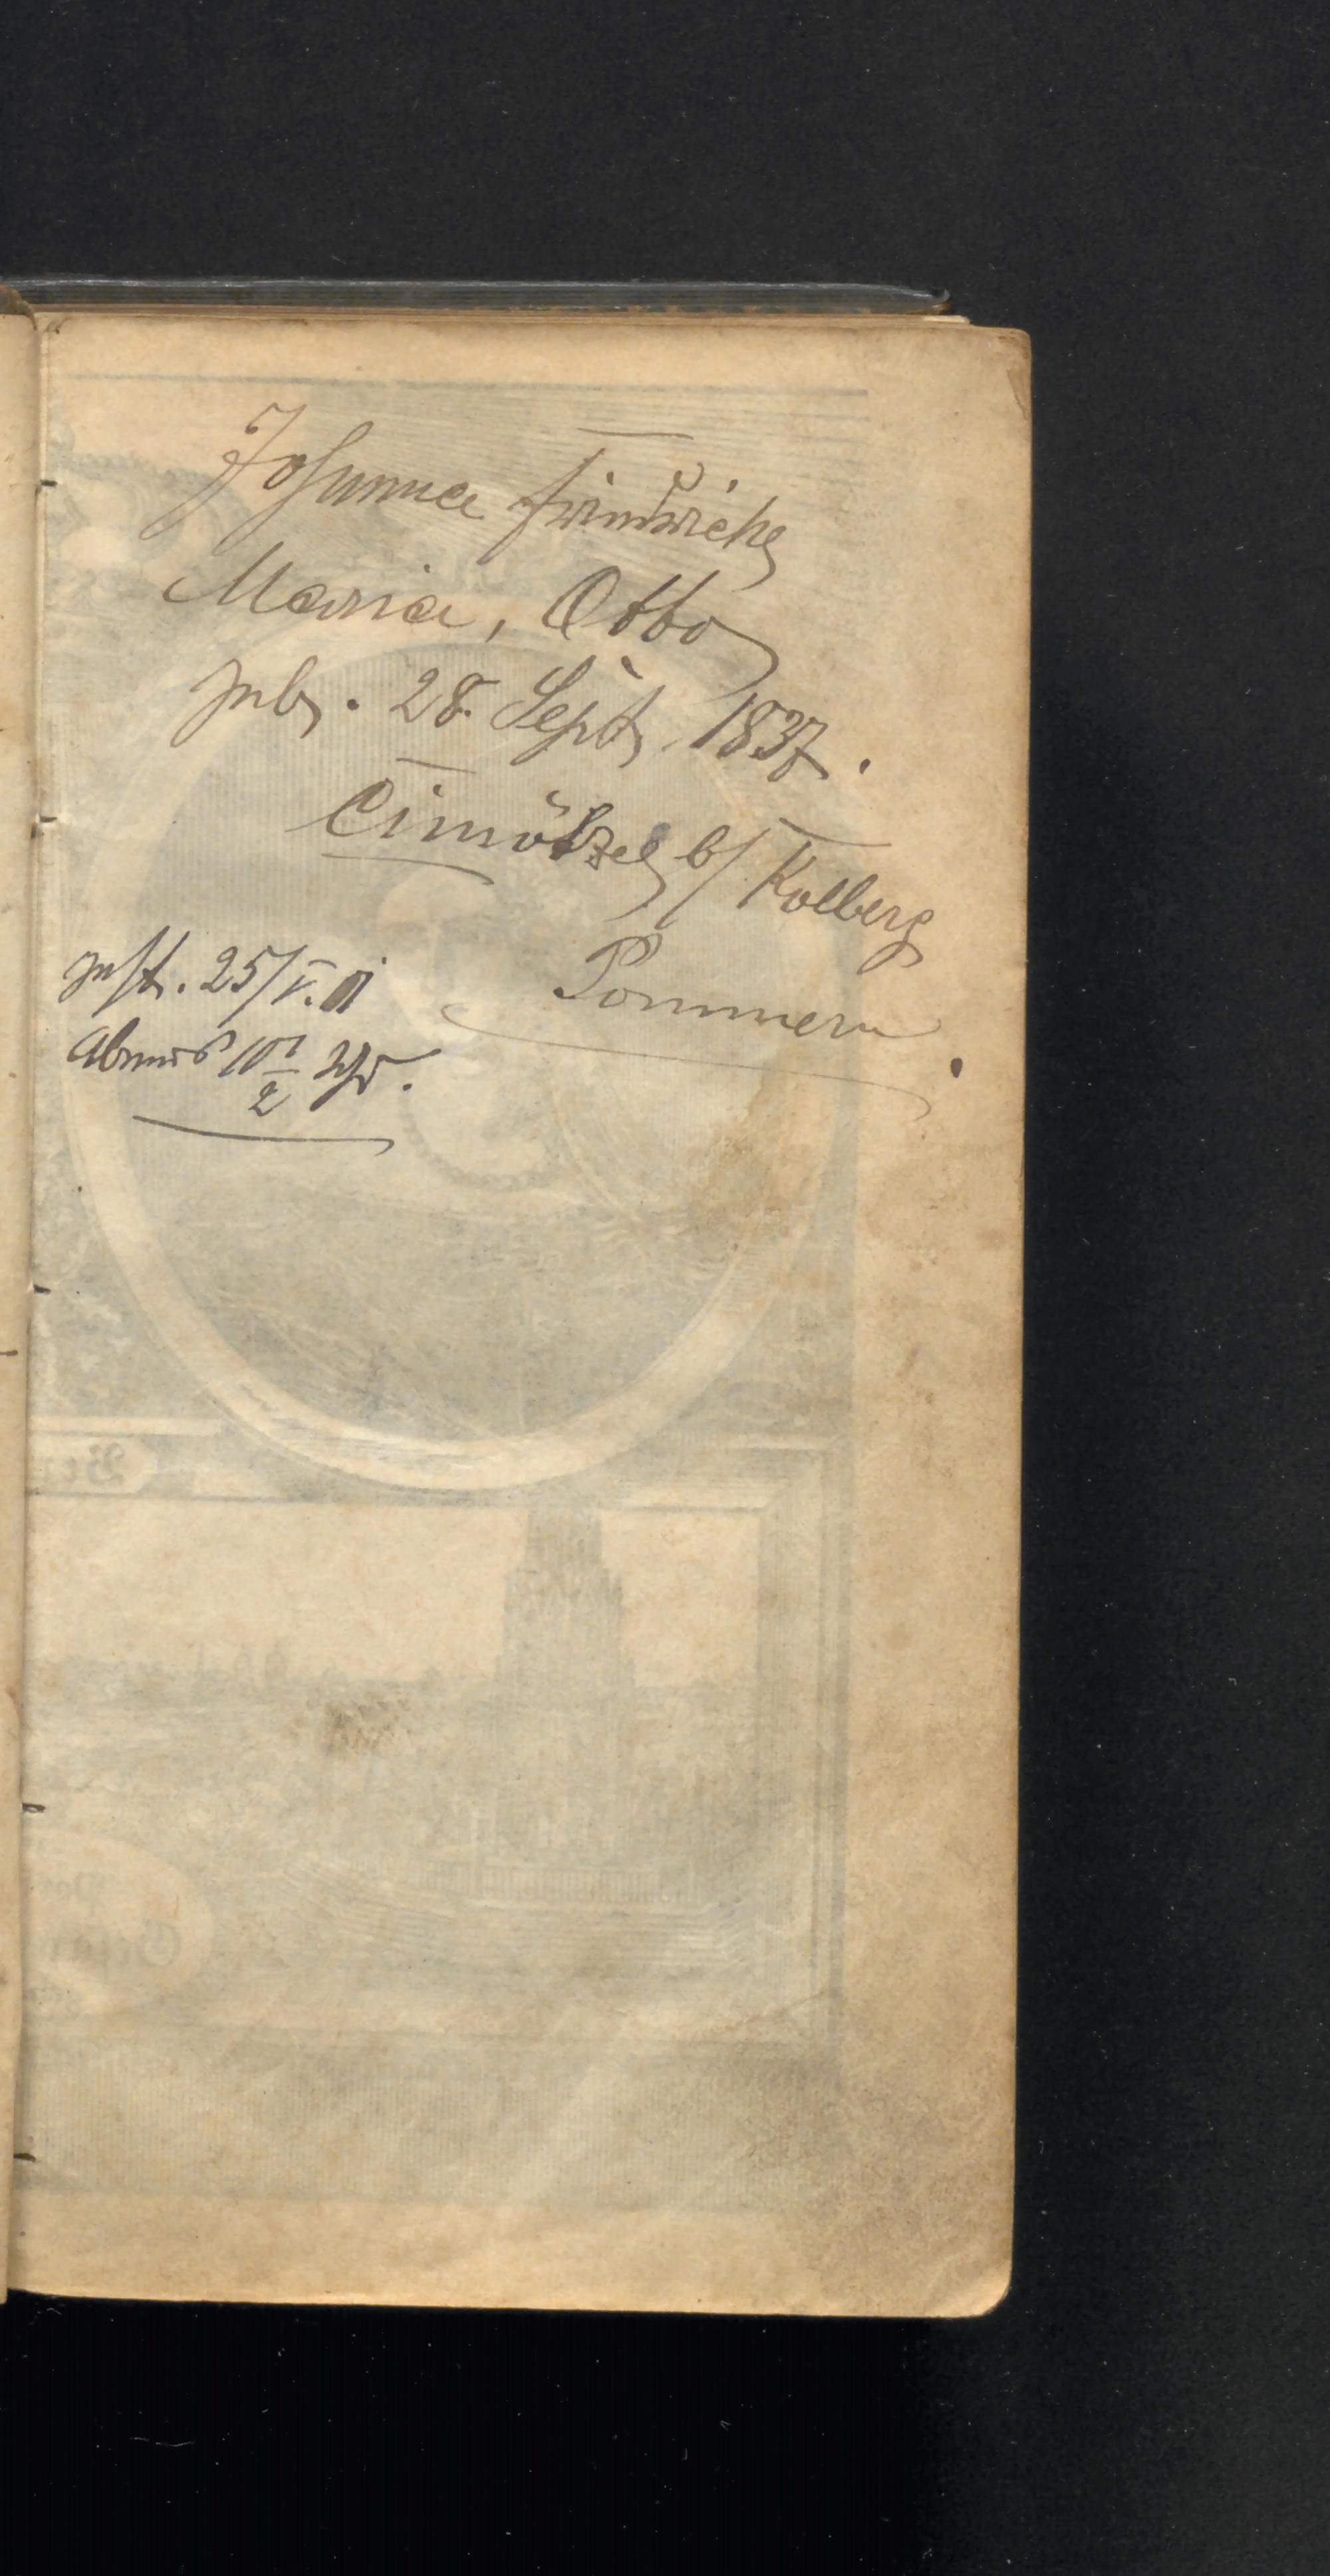 Johanna Friedricke
Maria, Otto
geb. 28. Sept. 1837.
Cimötzel b/ Kolberg
Pommern.
gest. 25/V. 01
Abends 10 1/2 Uhr.